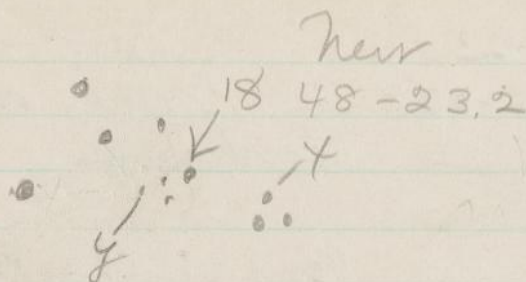 New
18 48 - 23.2
x
y